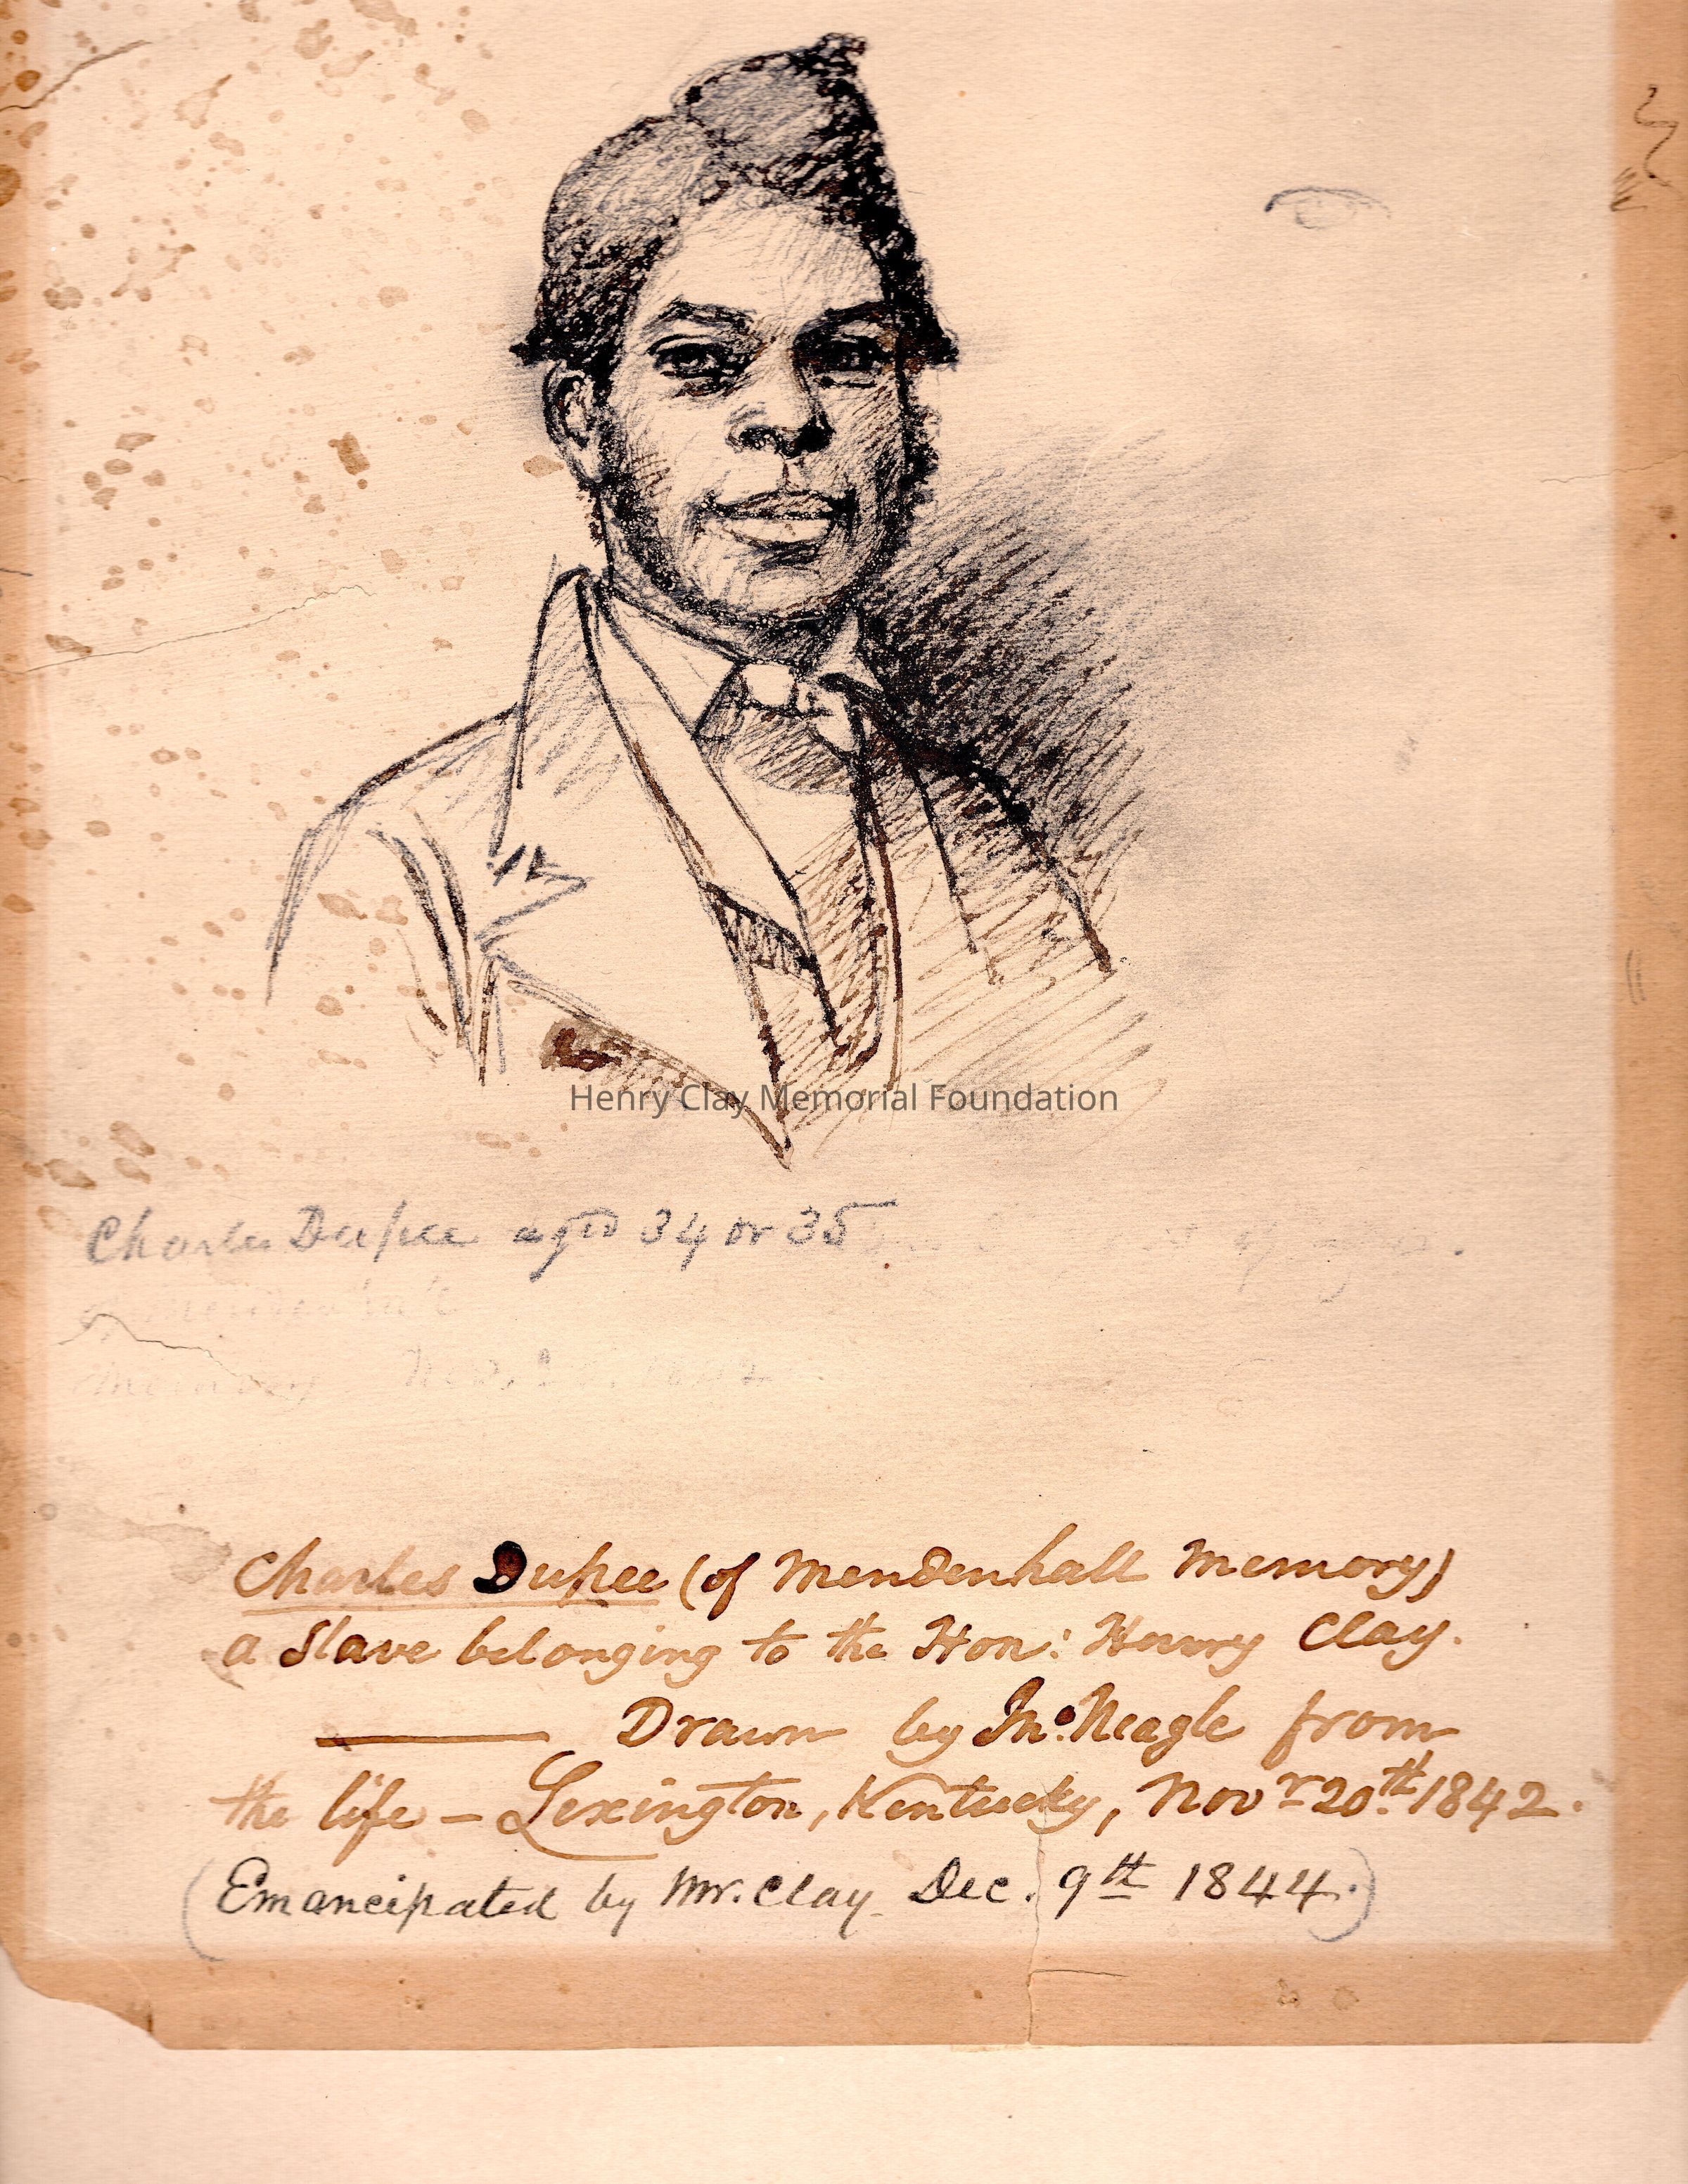 Henry Clay Memorial Foundation
Charles Dupee aged 34 or 35
of Mendenhall
Memory Nov. 20 1842
Charles Dupee (of Mendenhall Memory)
a Slave belonging to the Hon: Henry Clay.
Drawn by Jno. Neagle from
the life – Lexington, Kentucky, Novr 20th 1842.
(Emancipated by Mr. Clay Dec. 9th 1844.)